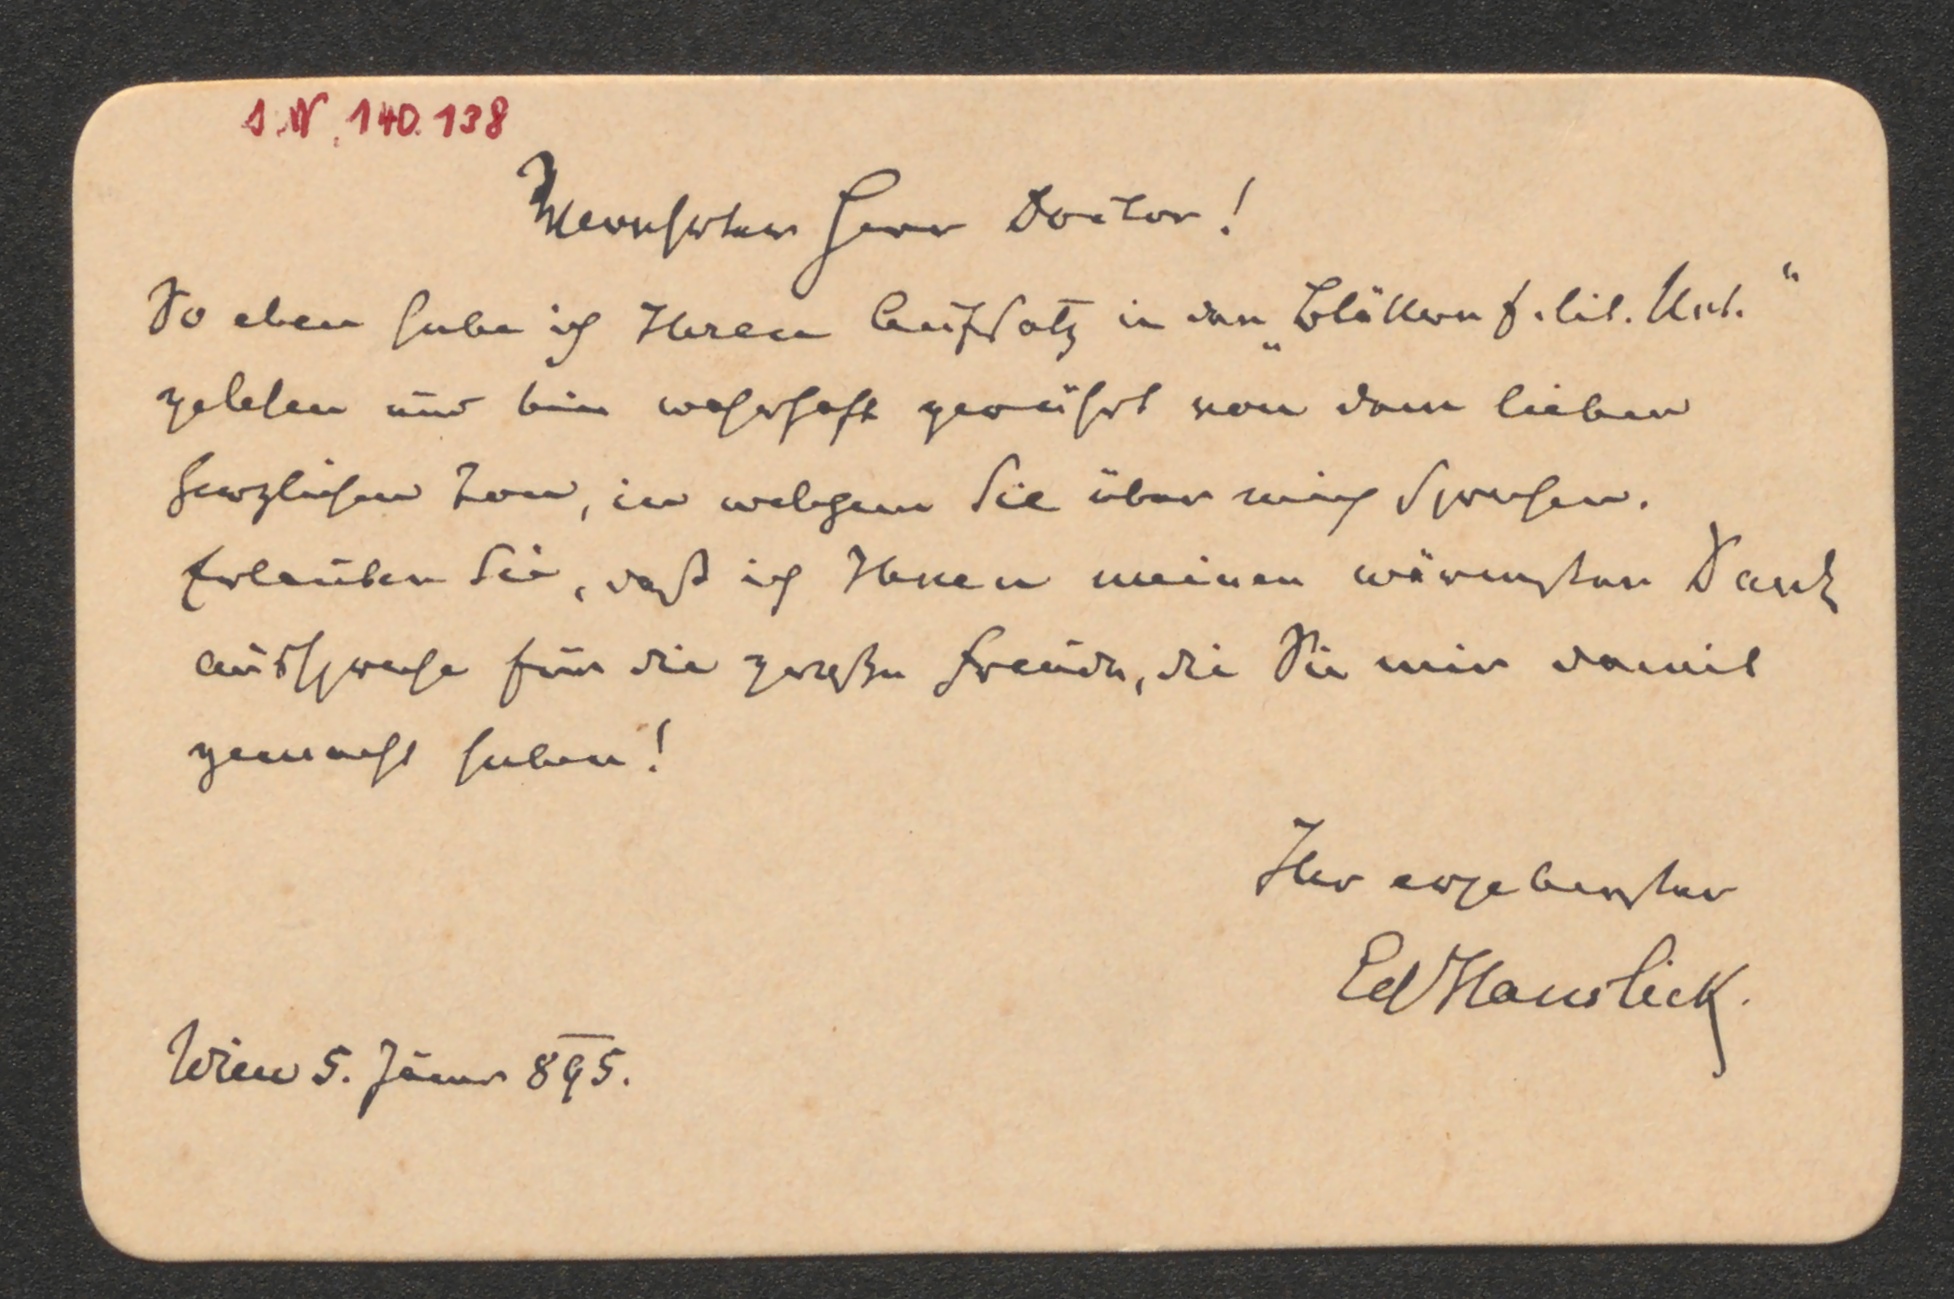 I.N. 140.138
Verehrter Herr Doctor!
So eben habe ich Ihren Aufsatz in den „Blättern f. lit. Unt.“
gelesen und bin wahrhaft gerührt von dem lieben
herzlichen Ton, in welchem Sie über mich sprechen.
Erlauben Sie, daß ich Ihnen meinen wärmsten Dank
ausspreche für die große Freude, die Sie mir damit
gemacht haben!
Ihr ergebenster
Ed Hanslick.
Wien 5. Jänner 895.